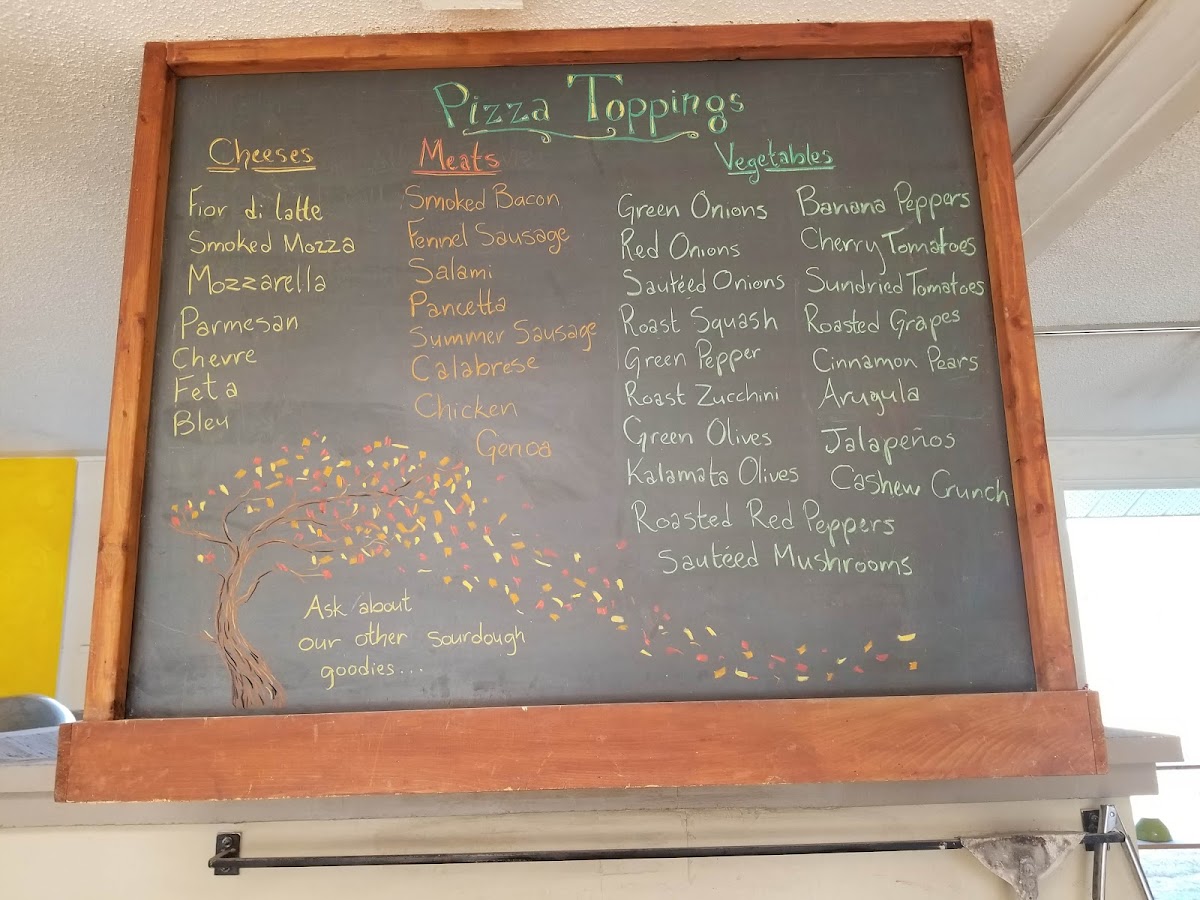 Pizza Toppings
Cheeses
Fior di latte
Smoked Mozza
Mozzarella
Parmesan
Chevre
Feta
Bleu
Meats
Smoked Bacon
Fennel Sausage
Salami
Pancetta
Summer Sausage
Calabrese
Chicken
Genoa
Vegetables
Green Onions
Red Onions
Sautéed Onions
Roast Squash
Green Pepper
Roast Zucchini
Green Olives
Kalamata Olives
Roasted Red Peppers
Sautéed Mushrooms
Banana Peppers
Cherry Tomatoes
Sundried Tomatoes
Roasted Grapes
Cinnamon Pears
Arugula
Jalapeños
Cashew Crunch
Ask about
our other sourdough
goodies...